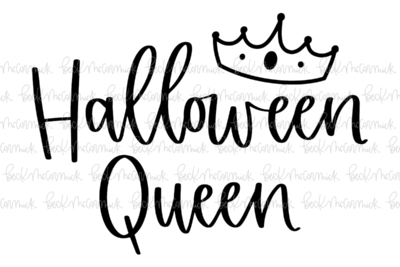 Halloween
Queen